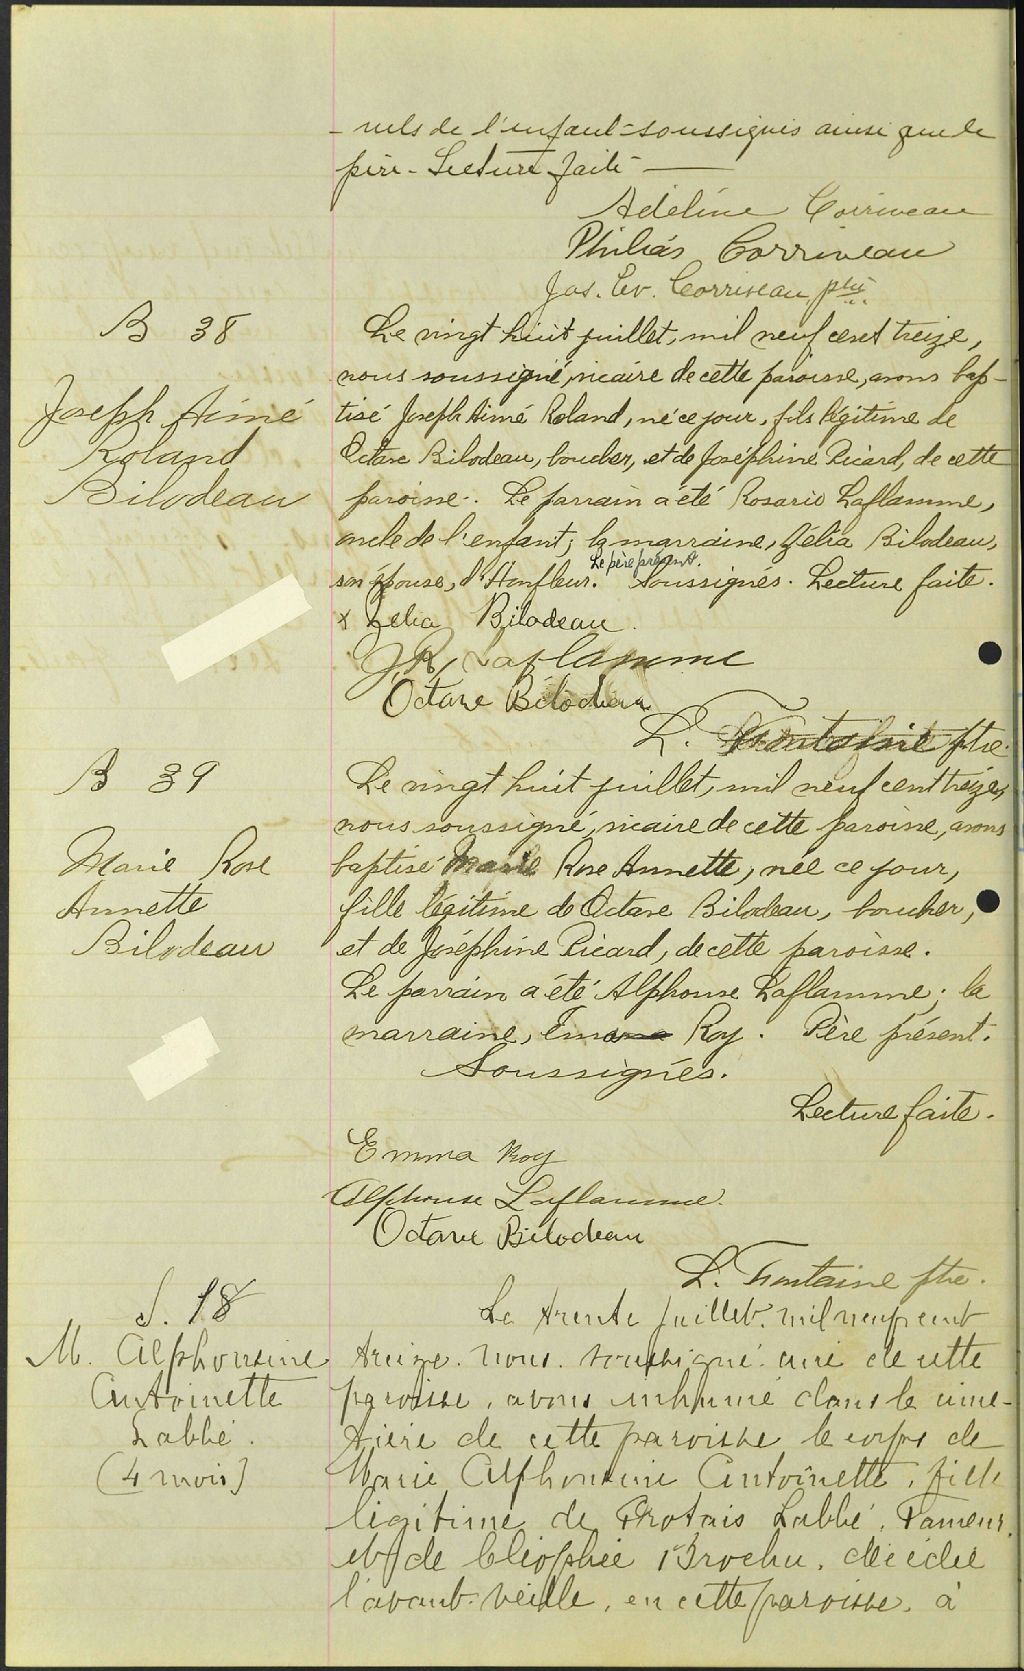 - nels de l'enfant - soussignés ainsi que le
père - Lecture faite -
Adéline Corriveau
Philias Corriveau
Jos. Ev. Corriveau, ptre
B 38
Joseph Aimé
Roland
Bilodeau
Le vingt huit juillet, mil neuf cent treize,
nous soussigné, vicaire de cette paroisse, avons bap-
tisé Joseph Aimé Roland, né ce jour, fils légitime de
Octave Bilodeau, boucher, et de Joséphine Picard, de cette
paroisse. Le parrain a été Rosario Laflamme,
oncle de l'enfant; la marraine, Zélia Bilodeau,
Le père présent.
son épouse, d'Honfleur. Soussignés. Lecture faite.
x Zelia Bilodeau
J. R. Laflamme
Octave Bilodeau
L. Fontaine ptre.
B 39
Marie Rose
Annette
Bilodeau
Le vingt huit juillet, mil neuf cent treize,
nous soussigné, vicaire de cette paroisse, avons
baptisé Marie Rose Annette, née ce jour,
fille légitime de Octave Bilodeau, boucher,
et de Joséphine Picard, de cette paroisse.
Le parrain a été Alphonse Laflamme; la
marraine, Emma Roy. Père présent.
Soussignés.
Lecture faite.
Emma Roy
Alphonse Laflamme
Octave Bilodeau
L. Fontaine ptre.
S. 18
M. Alphonsine
Antoinette
Labbé.
(4 mois)
Le trente juillet, mil neuf cent
treize, nous, soussigné, curé de cette
paroisse, avons inhumé dans le cime-
tière de cette paroisse le corps de
Marie Alphonsine Antoinette, fille
légitime de Protais Labbé, Tanneur,
et de Cléophée Brochu, décédée
l'avant-veille, en cette paroisse, à